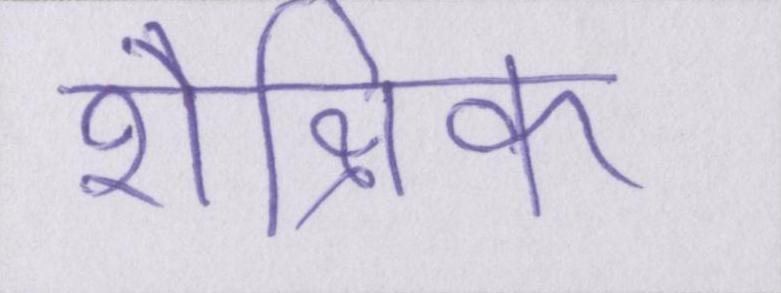 शैक्षिक